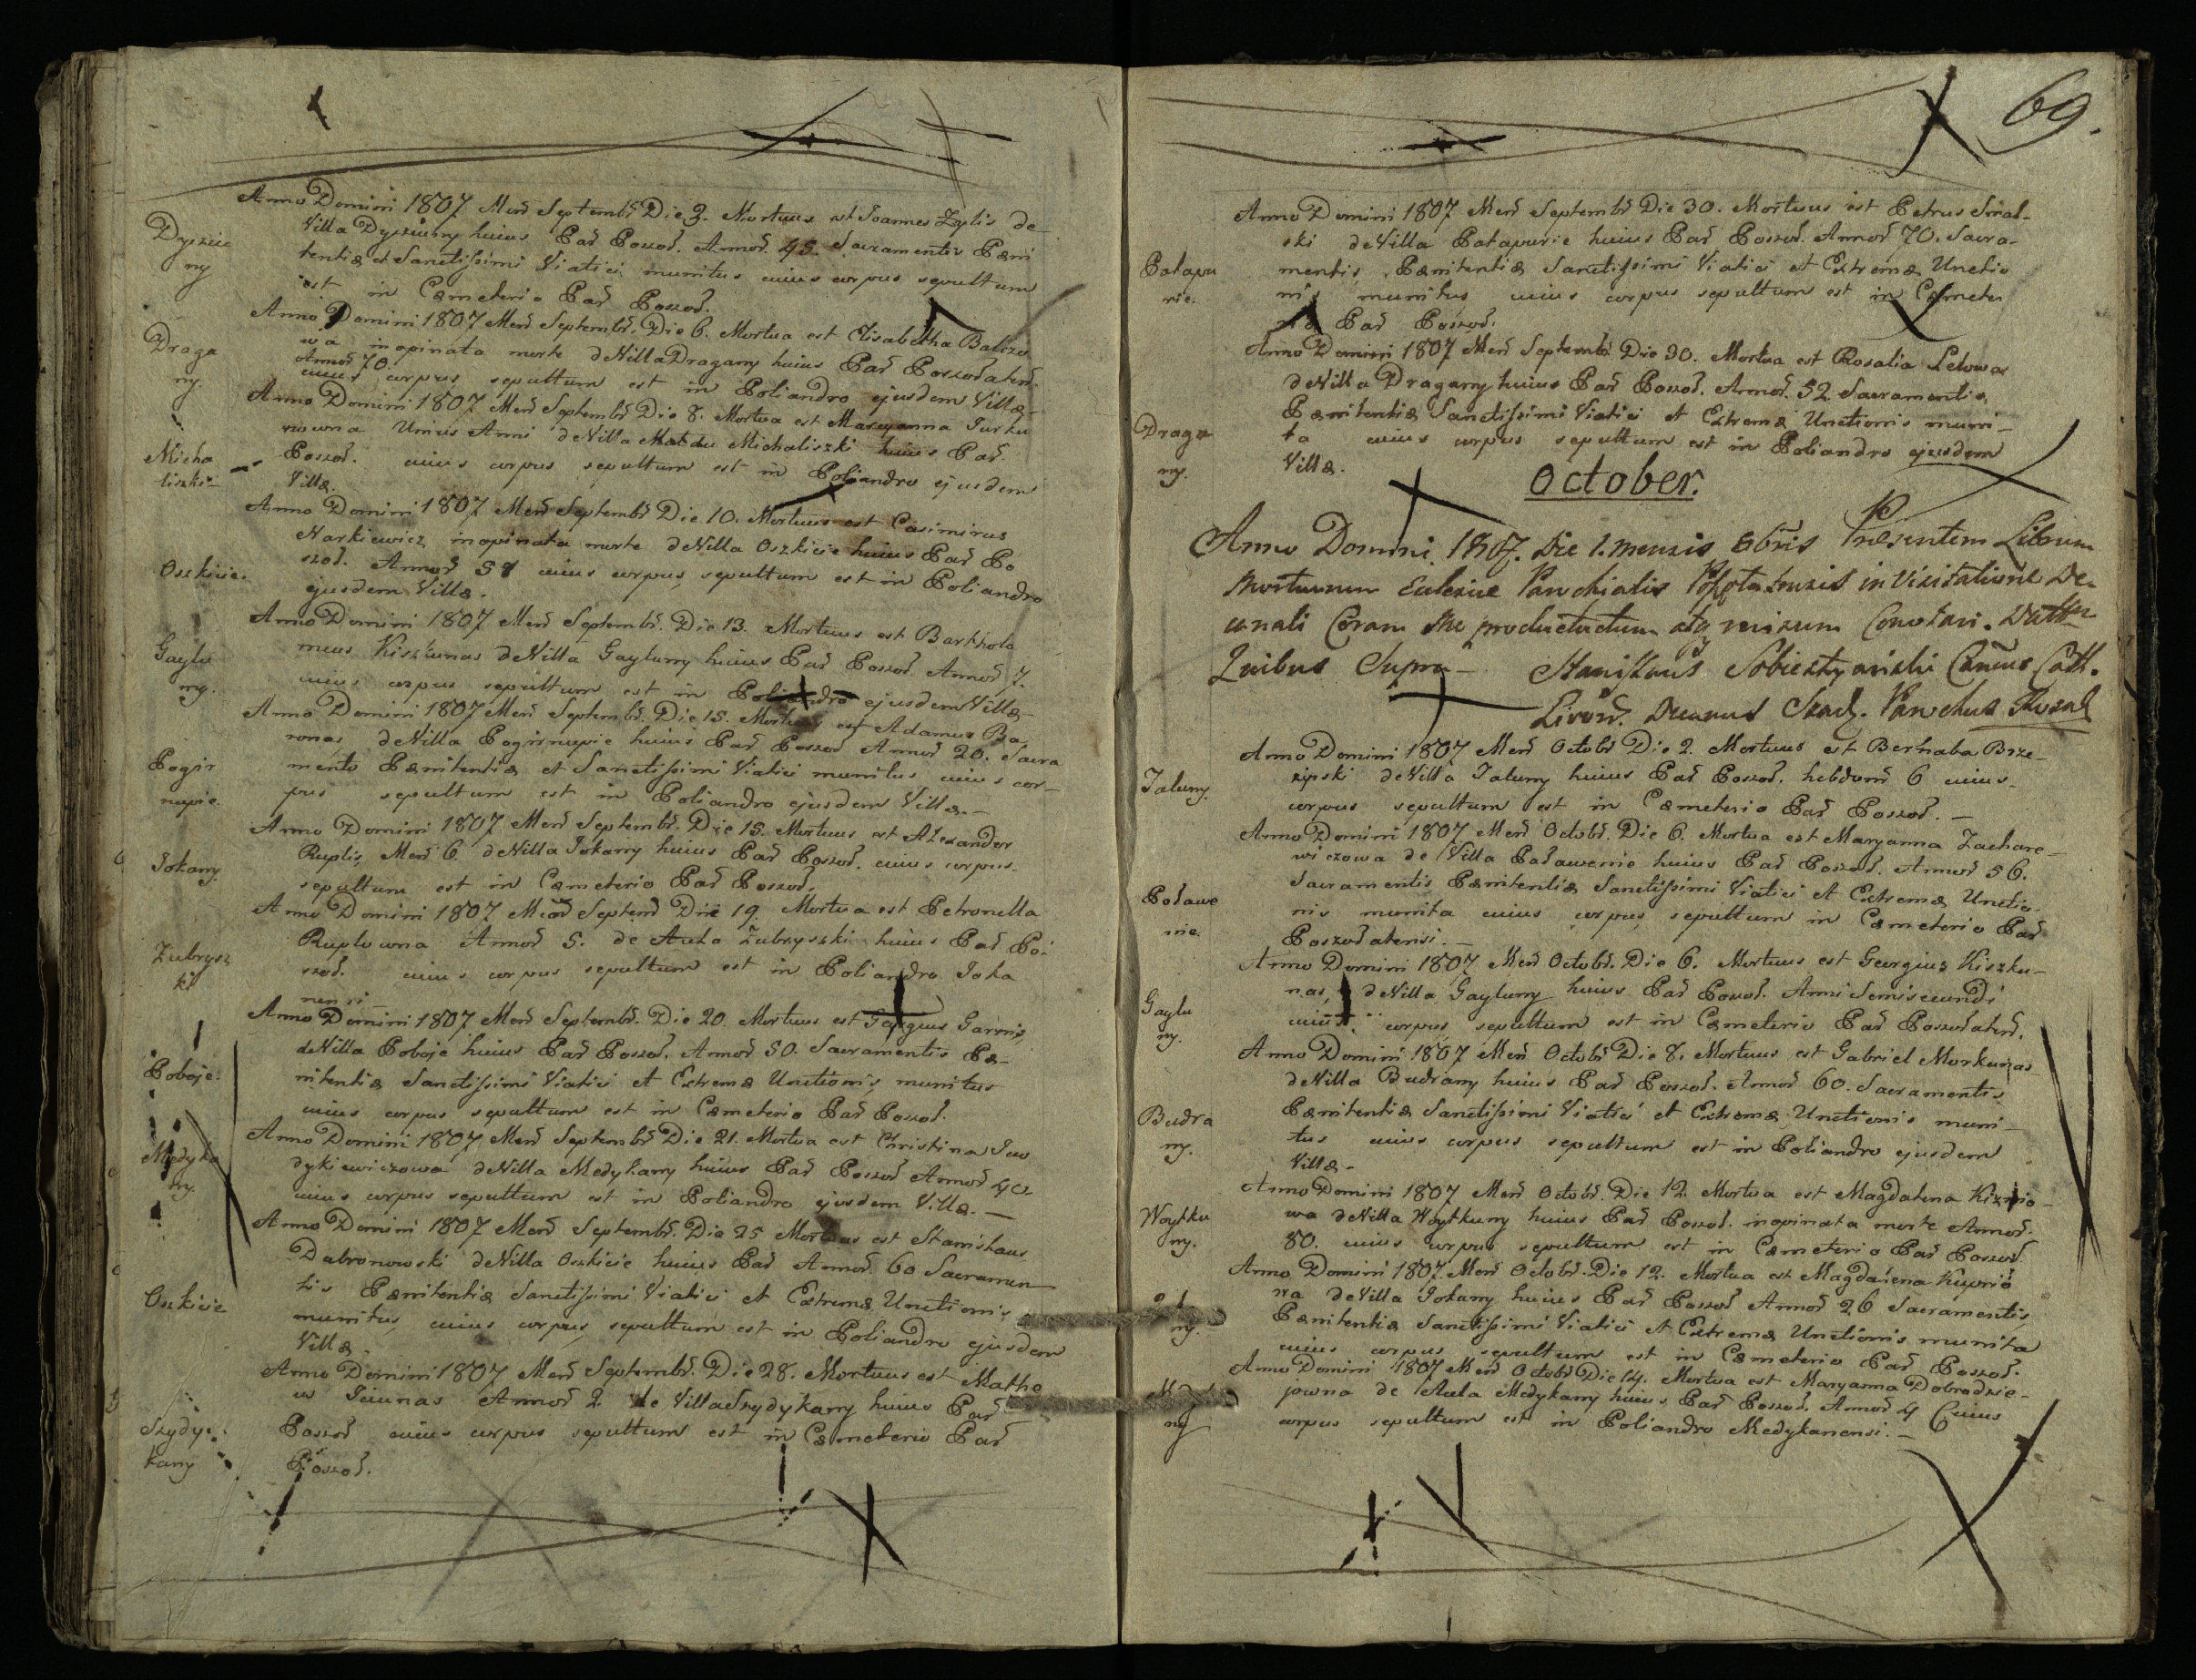 Dyrziu
ny
Anno Domini 1807 Mens Septembr Die 3. Mortuus est Joannes Zylis de
Villa Dyrziuny huius Par Poszoł. Annor. 45. Sacramentis Pæni
tentiæ et Sanctissimi Viatici munitus cuius corpus sepultum
est in Cæmeterio Par Poszoł.
Draga
ny.
Anno Domini 1807 Mens Septembr. Die 6. Mortua est Elisabetha Balczu
wa inopinata morte de Villa Dragany huius Par Poszołatens.
Annor 70.
cuius corpus sepultum est in Poliandro ejusdem Villæ
Micha
liszki
Anno Domini 1807 Mens Septembr Die 8. Mortua est Maryanna Jurku
nowna Unius Anni de Villa Małdu Michaliszki huius Par.
Poszoł. cuius corpus sepultum est in Poliandro ejusdem
Villæ.
Oszkicie.
Anno Domini 1807 Mens Septembr Die 10. Mortuus est Casimirus
Narkiewicz inopinata morte de Villa Oszkicie huius Par Po
szoł. Annor 58 cuius corpus sepultum est in Poliandro
ejusdem Villæ.
Gaylu
ny.
Anno Domini 1807 Mens Septembr. Die 13. Mortuus est Bartholo
meus Kiszkunas de Villa Gayluny huius Par Poszoł Annor 7.
cuius corpus sepultum est in Poliandro ejusdem Villæ
Pogir
nupie.
Anno Domini 1807 Mens Septembr. Die 15. Mortuus est Adamus Ba
ronas de Villa Pogirnupie huius Par Poszoł Annor 20. Sacra
mento Pænitentiæ et Sanctissimi Viatici munitus cuius cor
pus sepultum est in Poliandro ejusdem Villæ.
Jokany.
Anno Domini 1807 Mens Septembr. Die 15. Mortuus est Alexander
Ruplis Mens 6. de Villa Jokany huius Par Poszoł. cuius corpus
sepultum est in Cæmeterio Par Poszoł.
Zubrysz
ki
Anno Domini 1807 Mens Septembr Die 19. Mortua est Petronella
Ruplowna Annor 5. de Aula Zubryszki huius Par Po
szoł. cuius corpus sepultum est in Poliandro Joka
nensi
Poboje.
Anno Domini 1807 Mens Septembr. Die 20. Mortuus est Georgius Garnis
de Villa Poboje huius Par Poszoł. Annor 50. Sacramentis Pæ
nitentiæ Sanctissimi Viatici et Extremæ Unctionis munitus
cuius corpus sepultum est in Cæmeterio Par Poszoł.
Medyka
ny.
Anno Domini 1807 Mens Septembr Die 21. Mortua est Christina Juw
dykiewiczowa de Villa Medykany huius Par Poszoł Annor 40
cuius corpus sepultum est in Poliandro ejusdem Villæ.
Oszkicie
Anno Domini 1807 Mens Septembr. Die 25 Mortuus est Stanislaus
Dabronowski de Villa Oszkicie huius Par Annor. 60 Sacramen
tis Pænitentiæ Sanctissimi Viatici et Extremæ Unctionis
munitus, cuius corpus sepultum est in Poliandro ejusdem
Villæ.
Szydy
kany
Anno Domini 1807 Mens Septembr. Die 28. Mortuus est Mathe
us Annor 2 de Villa Szydykany huius Par
Poszoł cuius corpus sepultum est in Cæmeterio Par
Poszoł.
69.
Patapu
rie.
Anno Domini 1807 Mens Septembr Die 30. Mortuus est Petrus Smal
ski de Villa Patapurie huius Par Poszoł. Annor 70. Sacra
mentis Pænitentiæ Sanctissimi Viatici et Extremæ Unctio
nis munitus cuius corpus sepultum est in Cæmete
rio Par Poszoł.
Draga
ny.
Anno Domini 1807 Mens Septembr Die 30. Mortua est Rosalia Letowa
de Villa Dragany huius Par Poszoł. Annor. 52. Sacramentis
Pænitentiæ Sanctissimi Viatici et Extremæ Unctionis muni
ta cuius corpus sepultum est in Poliandro ejusdem
Villæ.
October.
Anno Domini 1807. Die 1. mensis 8bris Presentem Librum
Mortuorum Eclesiæ Parochialis in Visitatione De
canali Coram Me productum atq visum
Quibus Supra Stanislaus Canonicus Cath.
Livon. Decanus Parochus
Jaluny.
Anno Domini 1807 Mens Octobr Die 2. Mortuus est Bernaba Brze
zinski de Villa Jaluny huius Par Poszoł. hebdom 6 cuius
corpus sepultum est in Cæmeterio Par Poszoł.
Poławe
nie.
Anno Domini 1807 Mens Octobr. Die 6. Mortua est Maryanna Zachare
wiczowa de Villa Paławenie huius Par Poszoł. Annor 56.
Sacramentis Pænitentiæ Sanctissimi Viatici et Extremæ Unctio
nis munita cuius corpus sepultum in Cæmeterio Par
Poszołatensi.
Gaylu
ny.
Anno Domini 1807 Mens Octobr. Die 6. Mortuus est Georgius Kiszku
nas de Villa Gayluny huius Par Poszoł. Anni Semisecundi
cuius corpus sepultum est in Cæmeterio Par Poszołatens.
Budra
ny.
Anno Domini 1807 Mens Octobr Die 8. Mortuus est Gabriel Morkunas
de Villa Budrany huius Par Poszoł. Annor 60. Sacramentis
Pænitentiæ Sanctissimi Viatici et Extremæ Unctionis muni
tus cuius corpus sepultum est in Poliandro ejusdem
Villæ.
Woytku
ny.
Anno Domini 1807 Mens Octobr. Die 12. Mortua est Magdalena
wa de Villa Woytkuny huius Par Poszoł. inopinata morte Annor.
80. cuius corpus sepultum est in Cæmeterio Par Poszoł
ny.
Anno Domini 1807. Mens Octobr. Die 12. Mortua est Magdalena Kuprio
wa de Villa Jokany huius Par Poszoł Annor 26 Sacramentis
Pænitentiæ Sanctissimi Viatici et Extremæ Unctionis munita
cuius corpus sepultum est in Cæmeterio Par Poszoł.
ny
Anno Domini 1807 Mens Octobr Die 14. Mortua est Maryanna Dobradzie
jowna de Aula Medykany huius Par Poszoł. Annor 4 Cuius
corpus sepultum est in Poliandro Medykanensi.